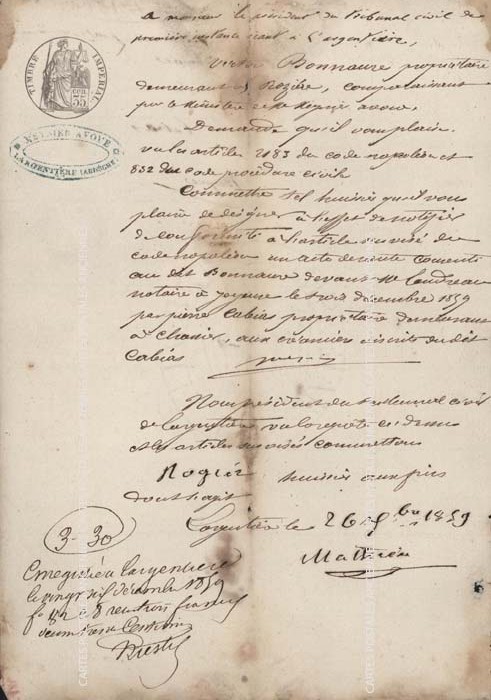 A monsieur le président du tribunal civil de
première instance séant à L'argentière,
TIMBRE IMPERIAL
35
Victor Bonnaure propriétaire
demeurant à Rozière, comparaissant
par le Ministère de avoué.
NEGRIER AVOUÉ
LARGENTIÈRE (ARDÈCHE)
Demande qu'il vous plaise
vu les articles 2183 du code napoléon et
832 du code procédure civil
Commettre tel huissier qu'il vous
plaira de désigner à l'effet de notifier
de conformité à l'article susvisé du
code napoléon un acte de vente consenti
au dit Bonnaure devant Me
notaire à Joyeuse le trois décembre 1859
par pierre Cabias propriétaire demeurant
à aux créanciers inscrits du dit
Cabias
Nous président du tribunal civil
de Largentière, vu la requête ci dessus
et les articles susvisés commettons
Rogier huissier aux fins
dont s'agit
Largentière le 26 Xbre 1859
Mathieu
3-30
Enregistré à Largentière
le vingt six décembre 1859
fo reçu trois francs
centimes